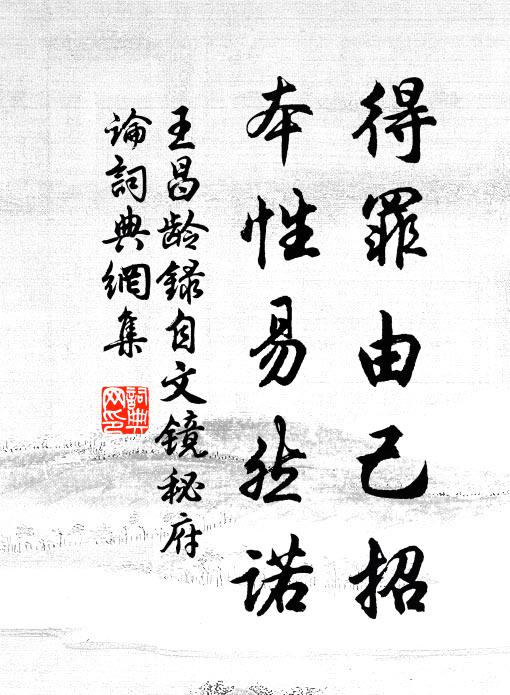 得罪由己招
本性易然诺
王昌龄録自文镜秘府
论詞典網集
詞典网印